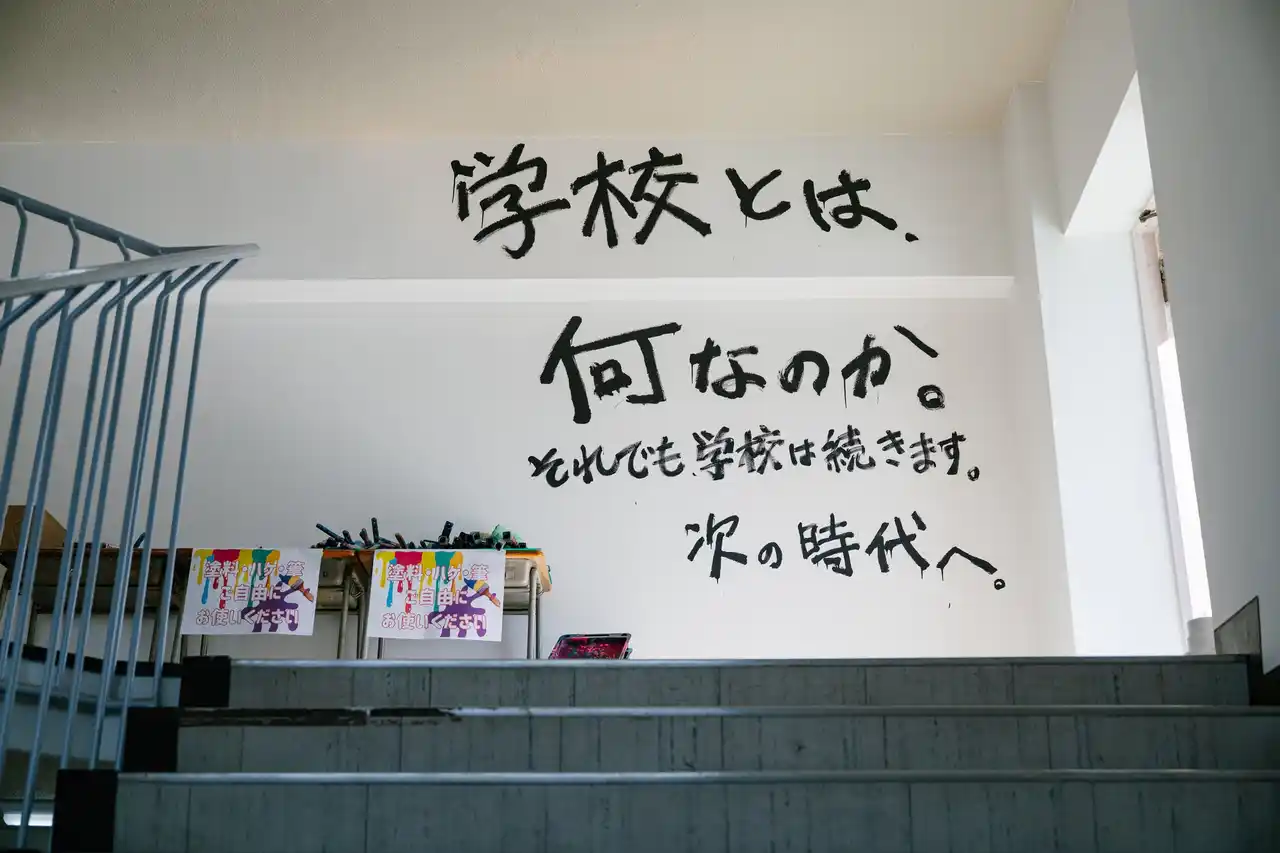 学校とは、
何なのか。
それでも学校は続きます。
次の時代へ。
塗料・ハケ・筆
ご自由に
お使いください
塗料・ハケ・筆
ご自由に
お使いください